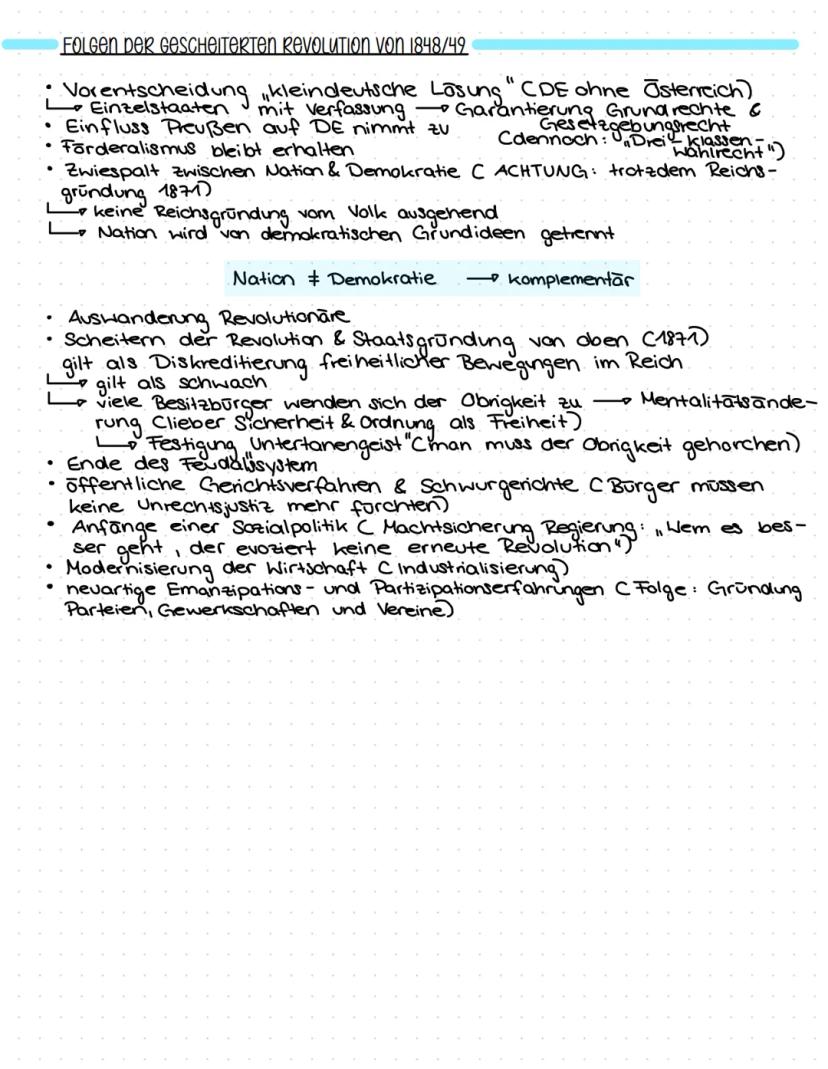 FOLGEN DER GESCHEITERTEN REVOLUTION VON 1848/49
• Vorentscheidung „kleindeutsche Lösung" (DE ohne Österreich)
↳ Einzelstaaten mit Verfassung → Garantierung Grundrechte &
Gesetzgebungsrecht
• Einfluss Preußen auf DE nimmt zu
(dennoch: „Drei-Klassen-
wahlrecht")
• Förderalismus bleibt erhalten
• Zwiespalt zwischen Nation & Demokratie ( ACHTUNG: trotzdem Reichs-
gründung 1871)
↳ keine Reichsgründung vom Volk ausgehend
↳ Nation wird von demokratischen Grundideen getrennt
Nation ≠ Demokratie → komplementär
• Auswanderung Revolutionäre
• Scheitern der Revolution & Staatsgründung von oben (1871)
gilt als Diskreditierung freiheitlicher Bewegungen im Reich
↳ gilt als schwach
↳ viele Besitzbürger wenden sich der Obrigkeit zu → Mentalitätsände-
rung (lieber Sicherheit & Ordnung als Freiheit)
↳ Festigung „Untertanengeist" (man muss der Obrigkeit gehorchen)
• Ende des Feudalsystem
• öffentliche Gerichtsverfahren & Schwurgerichte ( Bürger müssen
keine Unrechtsjustiz mehr fürchten)
• Anfänge einer Sozialpolitik ( Machtsicherung Regierung: „Wem es bes-
ser geht, der evoziert keine erneute Revolution")
• Modernisierung der Wirtschaft ( Industrialisierung)
• neuartige Emanzipations- und Partizipationserfahrungen ( Folge: Gründung
Parteien, Gewerkschaften und Vereine)